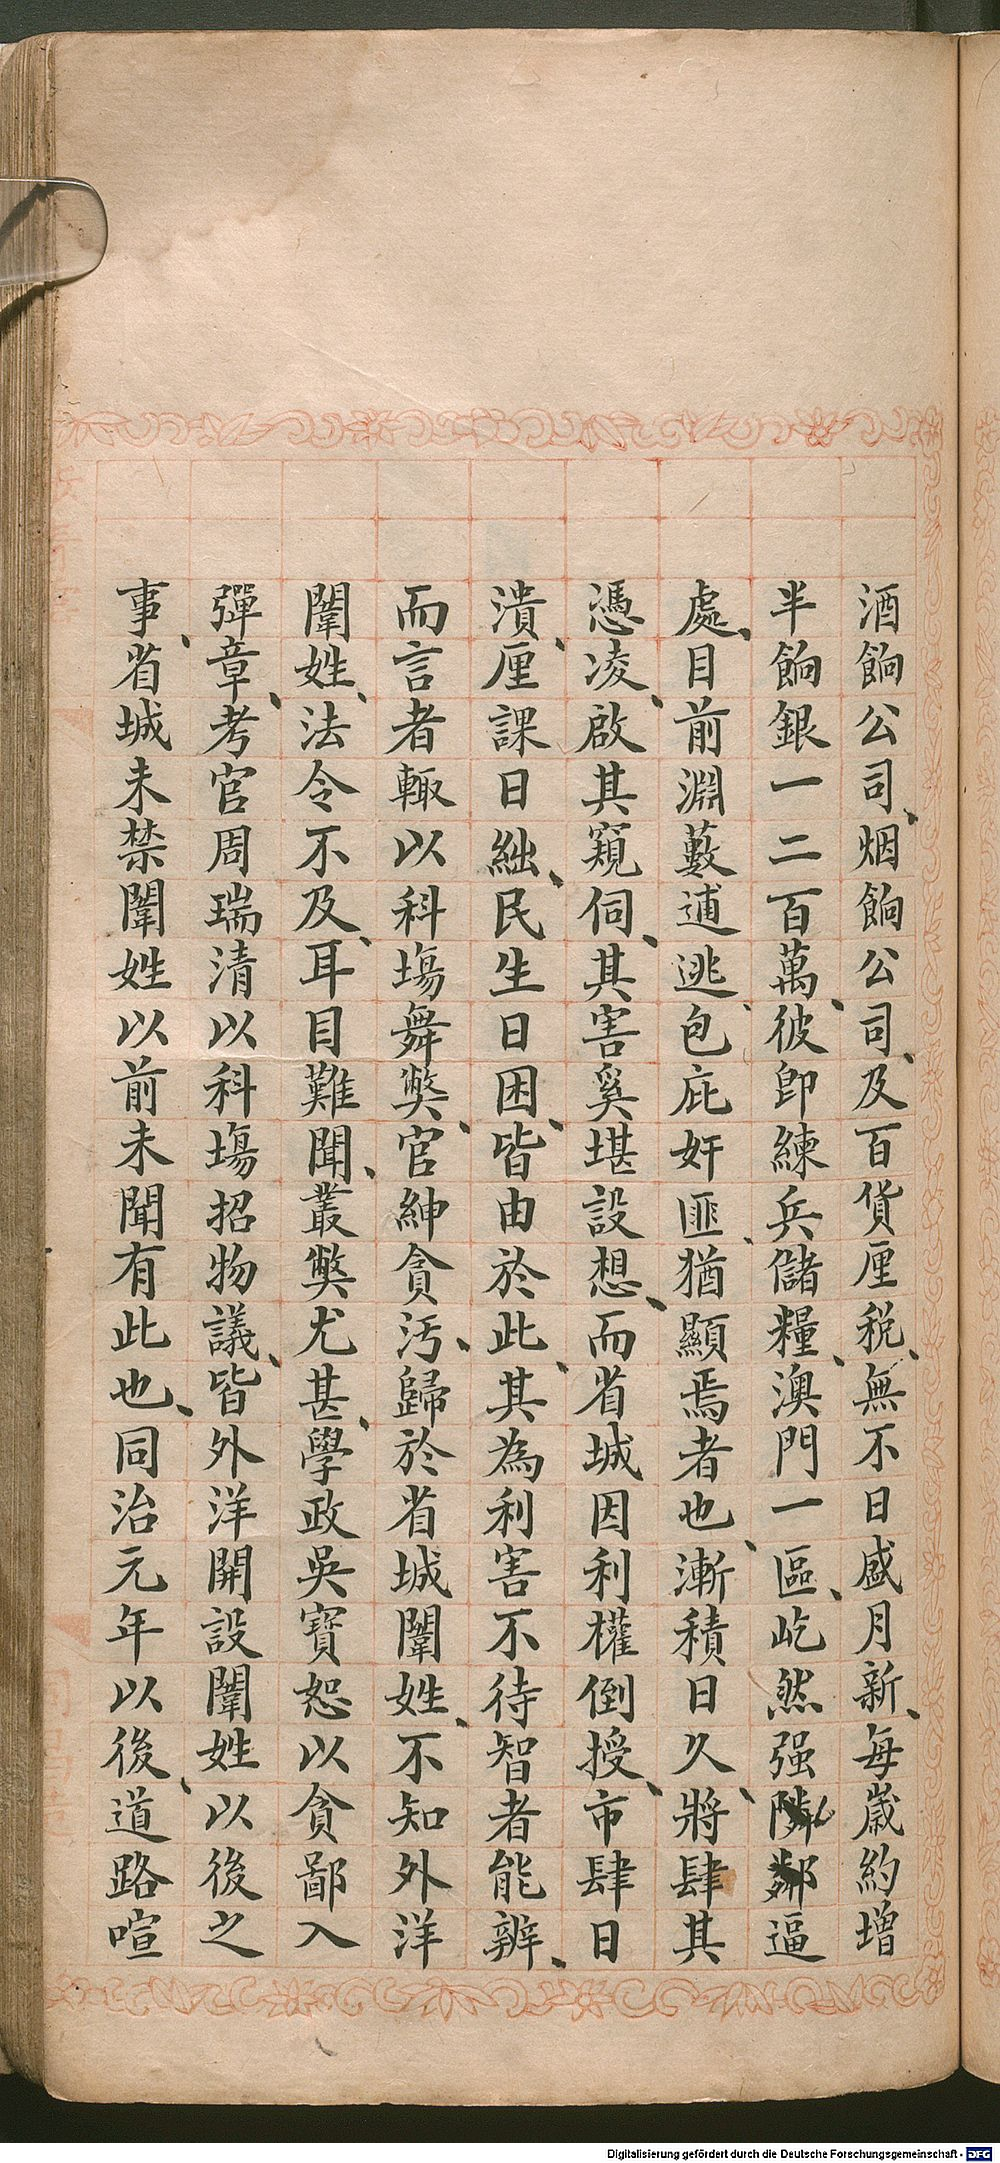 酒餉公司、烟餉公司、及百貨厘稅、無不日盛月新、每歲約增
半餉銀一二百萬、彼卽練兵儲糧、澳門一區、屹然强隣鄰逼
處、目前淵藪逋逃、包庇奸匪、猶顯焉者也、漸積日久、將肆其
憑凌、啟其窺伺、其害奚堪設想、而省城因利權倒授、市肆日
潰、厘課日絀、民生日困、皆由於此、其為利害不待智者能辨、
而言者輙以科塲舞獘、官紳貪污、歸於省城闈姓、不知外洋
闈姓、法令不及、耳目難聞、叢獘尤甚、學政吳寳恕以貪鄙入
彈章、考官周瑞清以科塲招物議、皆外洋開設闈姓以後之
事、省城未禁闈姓以前未聞有此也、同治元年以後、道路喧
Digitalisierung gefördert durch die Deutsche Forschungsgemeinschaft - DFG